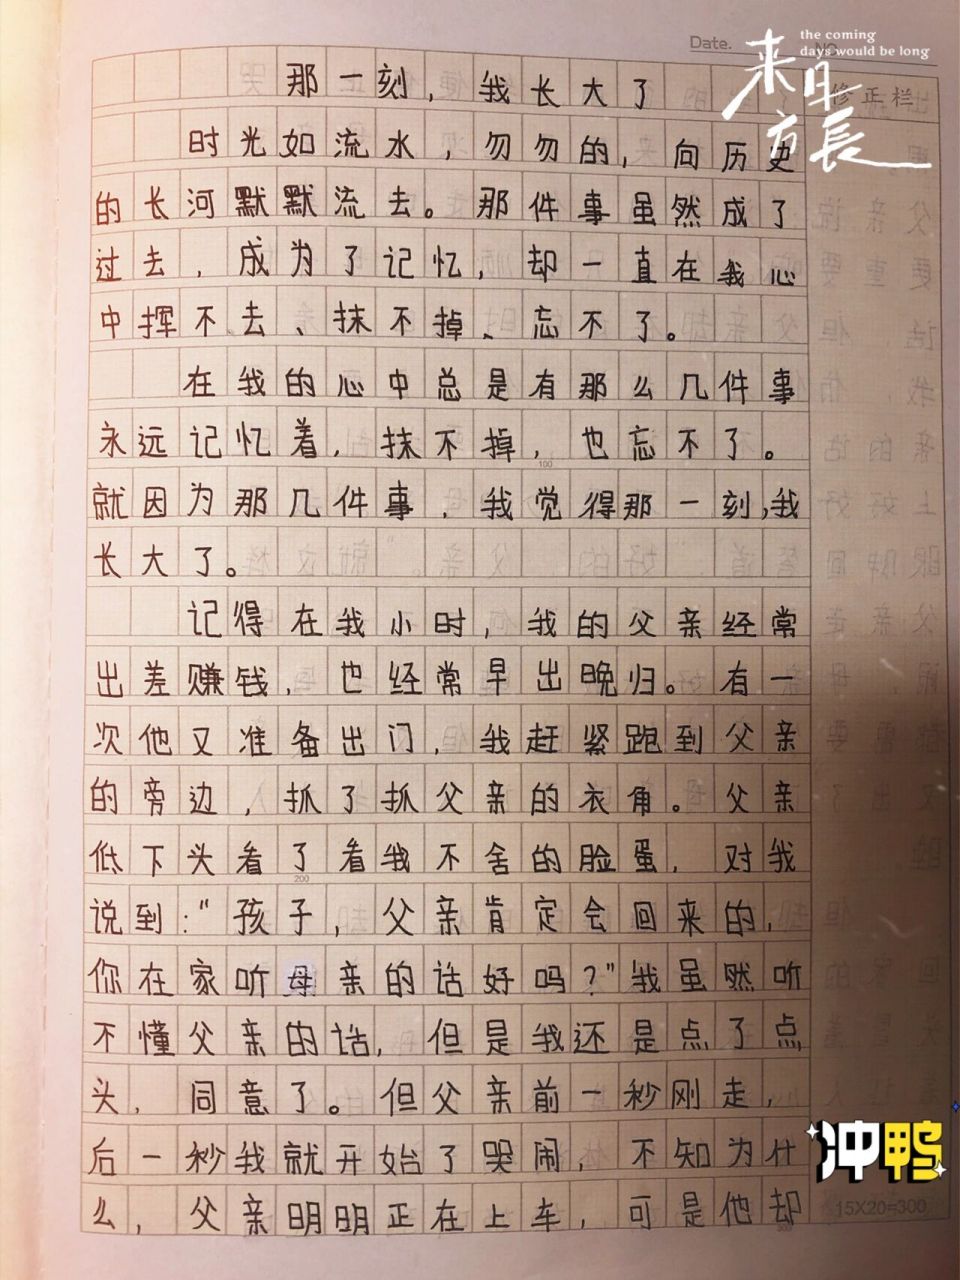 Date.
NO.
来日方長
the coming
days would be long
修正栏
那一刻，我长大了
时光如流水，勿勿的，向历史
的长河默默流去。那件事虽然成了
过去，成为了记忆，却一直在我心
中挥不去、抹不掉、忘不了。
在我的心中总是有那么几件事
永远记忆着，抹不掉，也忘不了。
100
就因为那几件事，我觉得那一刻，我
长大了。
记得在我小时，我的父亲经常
出差赚钱，也经常早出晚归。有一
次他又准备出门，我赶紧跑到父亲
的旁边，抓了抓父亲的衣角。父亲
低下头看了看我不舍的脸蛋，对我
200
说到：“孩子，父亲肯定会回来的，
你在家听母亲的话好吗？”我虽然听
不懂父亲的话，但是我还是点了点
头，同意了。但父亲前一秒刚走，
后一秒我就开始了哭闹，不知为什
么，父亲明明正在上车，可是他却
300
冲鸭
15X20=300